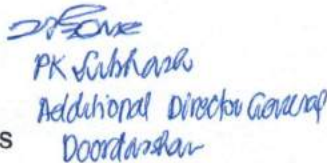 PK Subhash
Additional Director General
Doordarshan
s